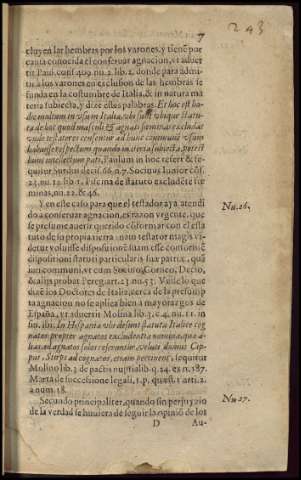 243
7
cluyen las hembras por los varones, y tienẽ por
cauta conocida el conseruar agnacion, vt aduer
tit Paul. cons. 409. nu. 2. lib. 2. donde para admi-
tir a los varones en exclusion de las hembras se
funda en la costumbre de Italia, & in natura ma
teria subiecta, y dize estas palabras. Et hoc est ho-
die multum in vsu in Italia vbi sunt vbique statu-
ta
quod masculi & agnati fœminas excludãt
vnde testatores censentur ad hunc communẽ vsum
habuisse respectum quando in certa subiecta, potest
hunc intellectum pati, Paulum in hoc refert & se-
quitur Surdus decis. 66. n. 7. Socinus Iunior cõs.
minas, nu. 12. & 46.
Y en este caso para que el testador aya atendi
do a conseruar agnacion, es razon vrgente, que
se presume auerse querido cõformar con el esta
tuto de su propia tierra: nam testator magis vi-
detur voluisse dispositionẽ suam esse conformẽ
dispositioni statuti particularis suæ patriæ, quã
iuri communi, vt cum Socino, Corneo, Decio,
& alijs probat Peregr. art. 27. nu. 53. Y todo lo que
dizẽ los Doctores de Italia, cerca de la presump
ta agnacion no se aplica bien a mayorazgos de
España, vt aduertit Molina lib. 3. c. 4. nu. 11. in
fin. ibi. In Hispania vbi desunt statuta Italiæ cog
natos propter agnatos excludentia nomina, quæ a-
lias ad agnatos solos referuntur, veluti domus Cep
pus, Stirps ad cognatos, etiam pertinent, sequitur
Molino lib. 3. de pactis nuptialib. q. 24. ex n. 187.
Marta de successione legali, 1. p. quæst. 1. arti. 2.
a num. 18.
Secundo principaliter, quando sin perjuyzio
de la verdad se huuiera de seguir la opiniõ de los
D Au-
Nu. 26.
Nu. 27.